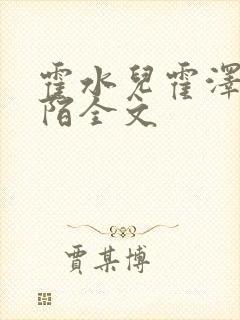 霍水兒霍澤
陌全文
賈某博